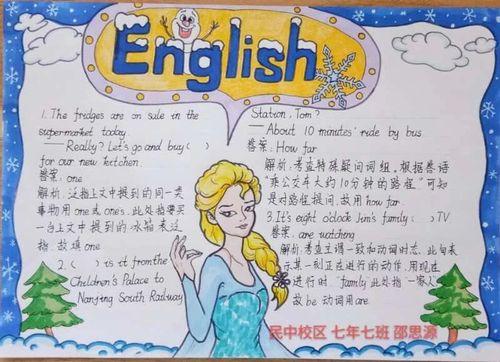 English
1. The fridges are on sale in the
supermarket today.
—— Really? Let's go and buy ( )
for our new kitchen.
答案: one
解析: 泛指上文中提到的同一类
事物用 one 或 ones. 此处指要买
一台上文中提到的冰箱表泛
指. 故填 one
2. ( ) is it from the
Children's Palace to
Nanjing South Railway
Station, Tom?
—— About 10 minutes' ride by bus.
答案: How far
解析: 考查特殊疑问词组. 根据答语
"乘公交车大约10分钟的路程"可知
是对路程提问, 故用 how far
3. It's eight o'clock Jim's family ( ) TV
答案: are watching
解析: 考查主谓一致和动词时态. 此句表
示某一刻正在进行的动作, 用现在
进行时. "family"此处指"一家人"
故 be 动词用 are
民中校区 七年七班 邵思源